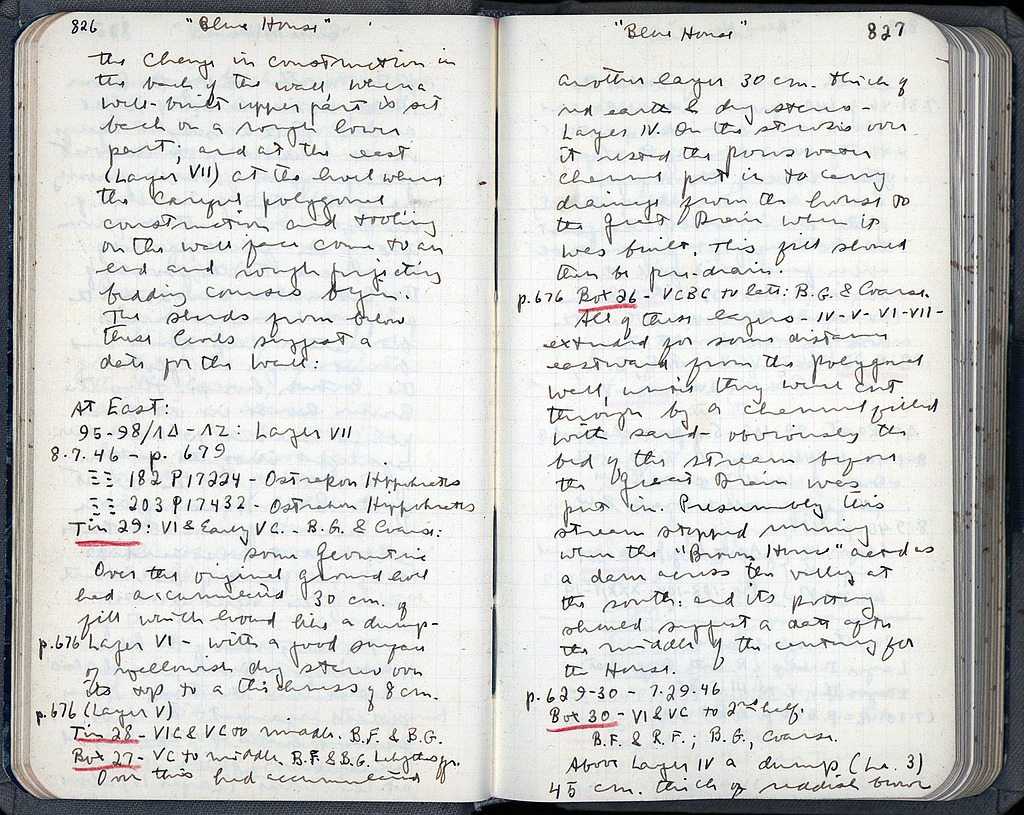 826 "Blue House"
the change in construction in
the back of the wall, when a
well-built upper part is set
back on a rough lower
part; and at the east
(Layer VII) at the level where
the careful polygonal
construction and tooling
on the wall face come to an
end and rough projecting
bedding courses begin.
The sherds from below
these levels suggest a
date for the wall:
At East:
95-98/ΛΔ-ΛΖ: Layer VII
8.7.46 - p. 679
182 P17224 - Ostrakon Hippokrates
203 P17432 - Ostrakon Hippokrates
Tin 29: VI & Early VC. - B.G. & Coarse:
some Geometric
Over the original ground level
had accumulated 30 cm. of
fill which looked like a dump-
p.676 Layer VI - with a good surface
of yellowish dry stereo over
its top to a thickness of 8 cm.
p.676 (Layer V)
Tin 28 - VIC & VC to middle. B.F. & B.G.
Box 27 - VC to middle. B.F. & B.G.
Over this had accumulated
"Blue House" 827
another layer 30 cm. thick of
red earth & dry stereo -
Layer IV. On the stereo over
it rested the poros water
channel put in to carry
drainage from the house to
the Great Drain when it
was built. This fill should
then be pre-drain.
p.676 Box 26 - VCBC to late: B.G. & Coarse.
All of these layers - IV-V-VI-VII-
extended for some distance
eastward from the polygonal
wall, until they were cut
through by a channel filled
with sand - obviously the
bed of the stream before
the Great Drain was
put in. Presumably this
stream stopped running
when the "Blue House" acted as
a dam across the valley at
the south: and its pottery
should suggest a date after
the middle of the century for
the House.
p.629-30 - 7.29.46
Box 30 - VI & VC to 2nd half.
B.F. & R.F.; B.G., Coarse.
Above Layer IV a dump (La. 3)
45 cm. thick of reddish brown